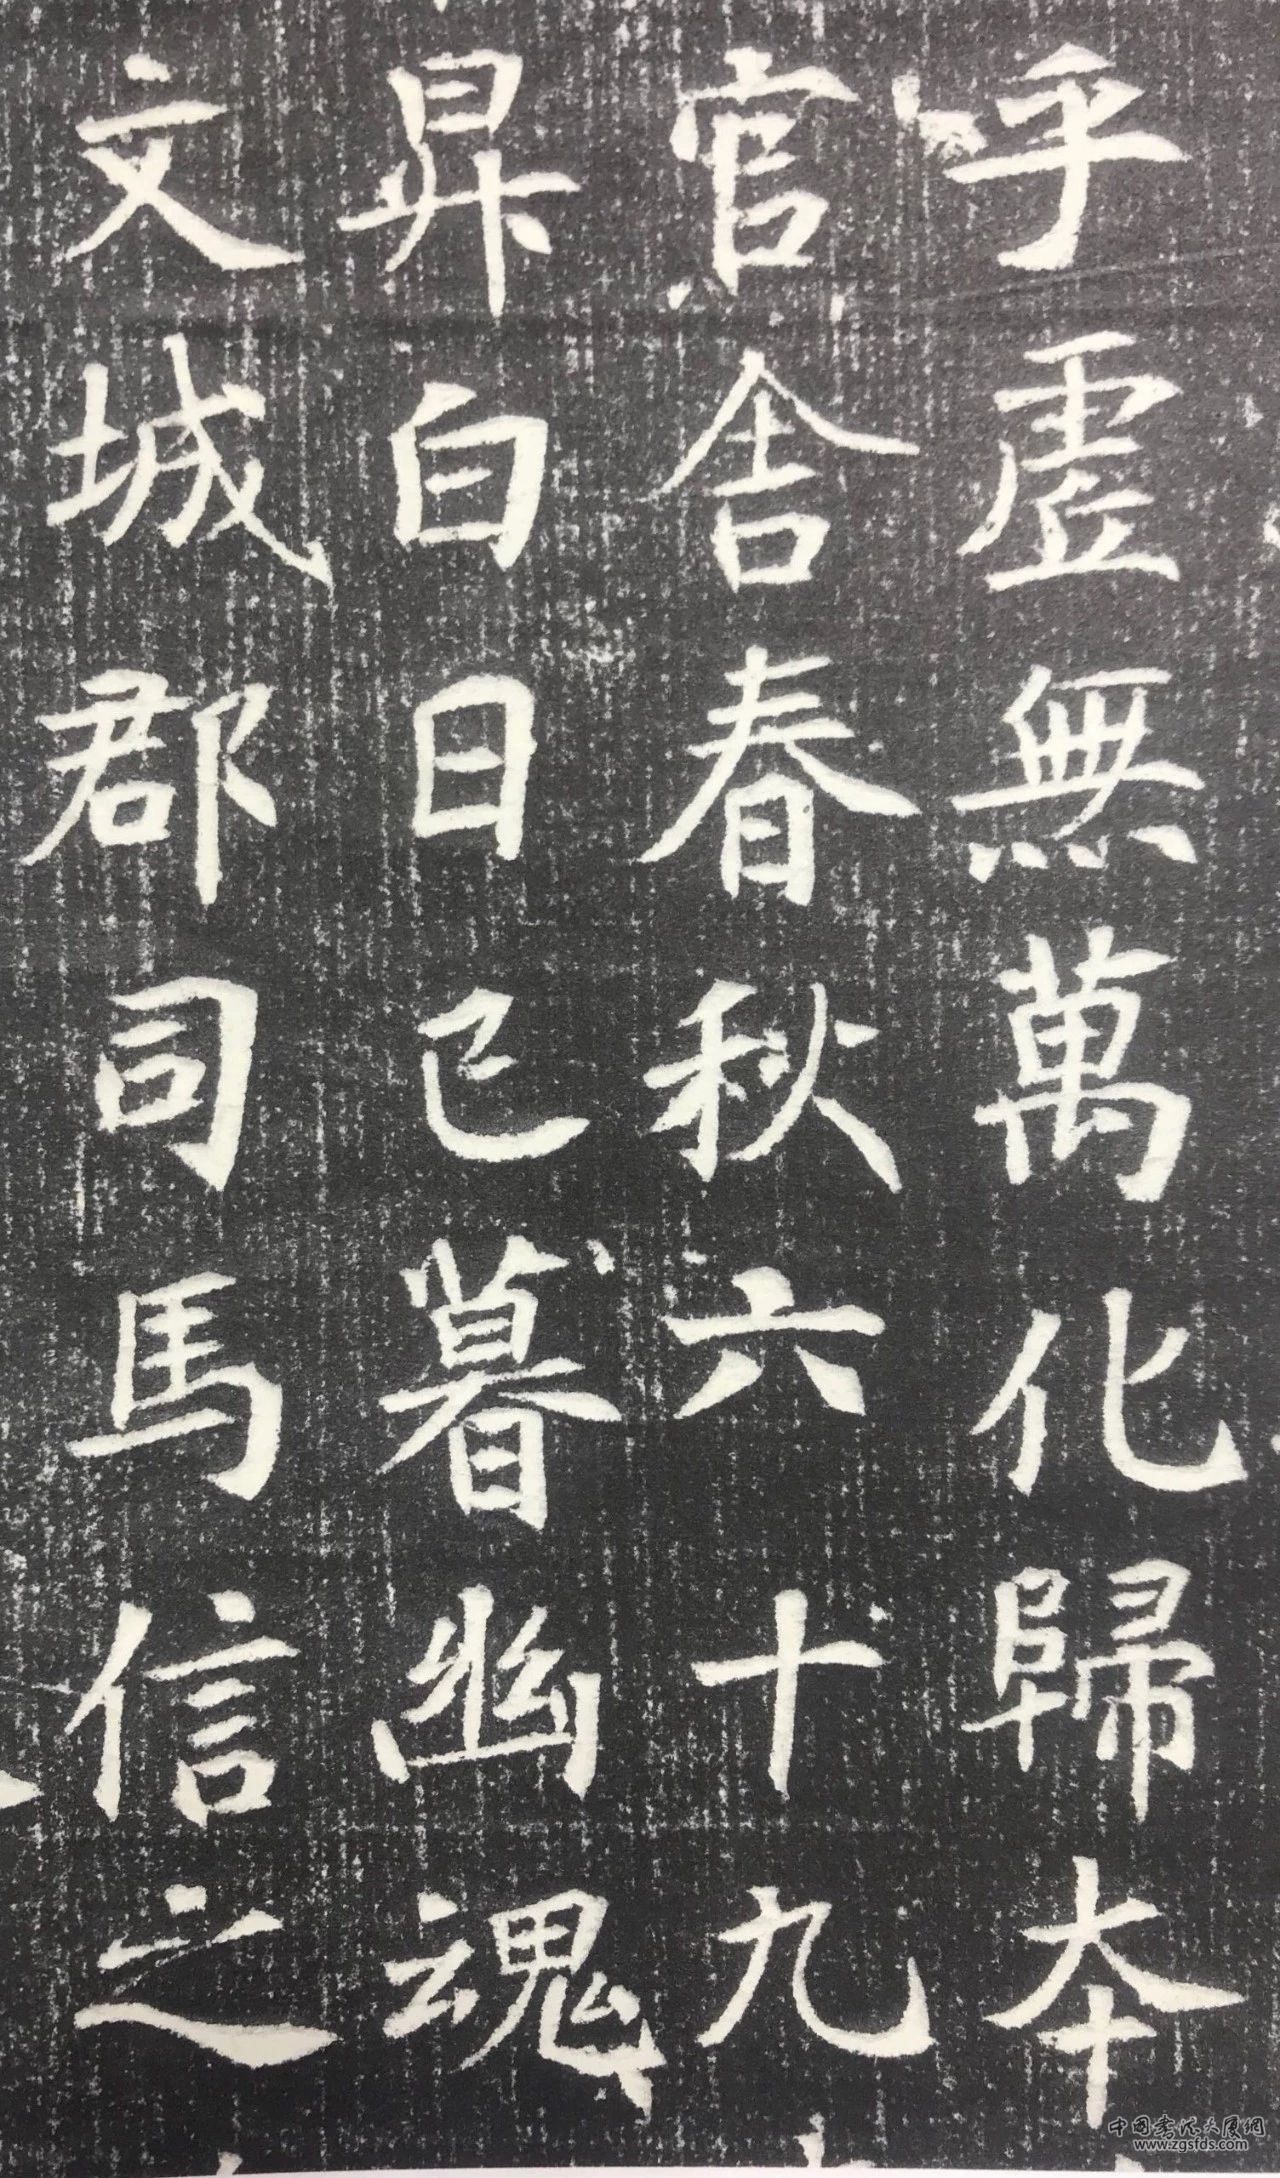 乎虛無萬化歸本
官舍春秋六十九
昇白日已暮幽魂
文城郡司馬信之
中國書法大廈網
www.zgsfds.com